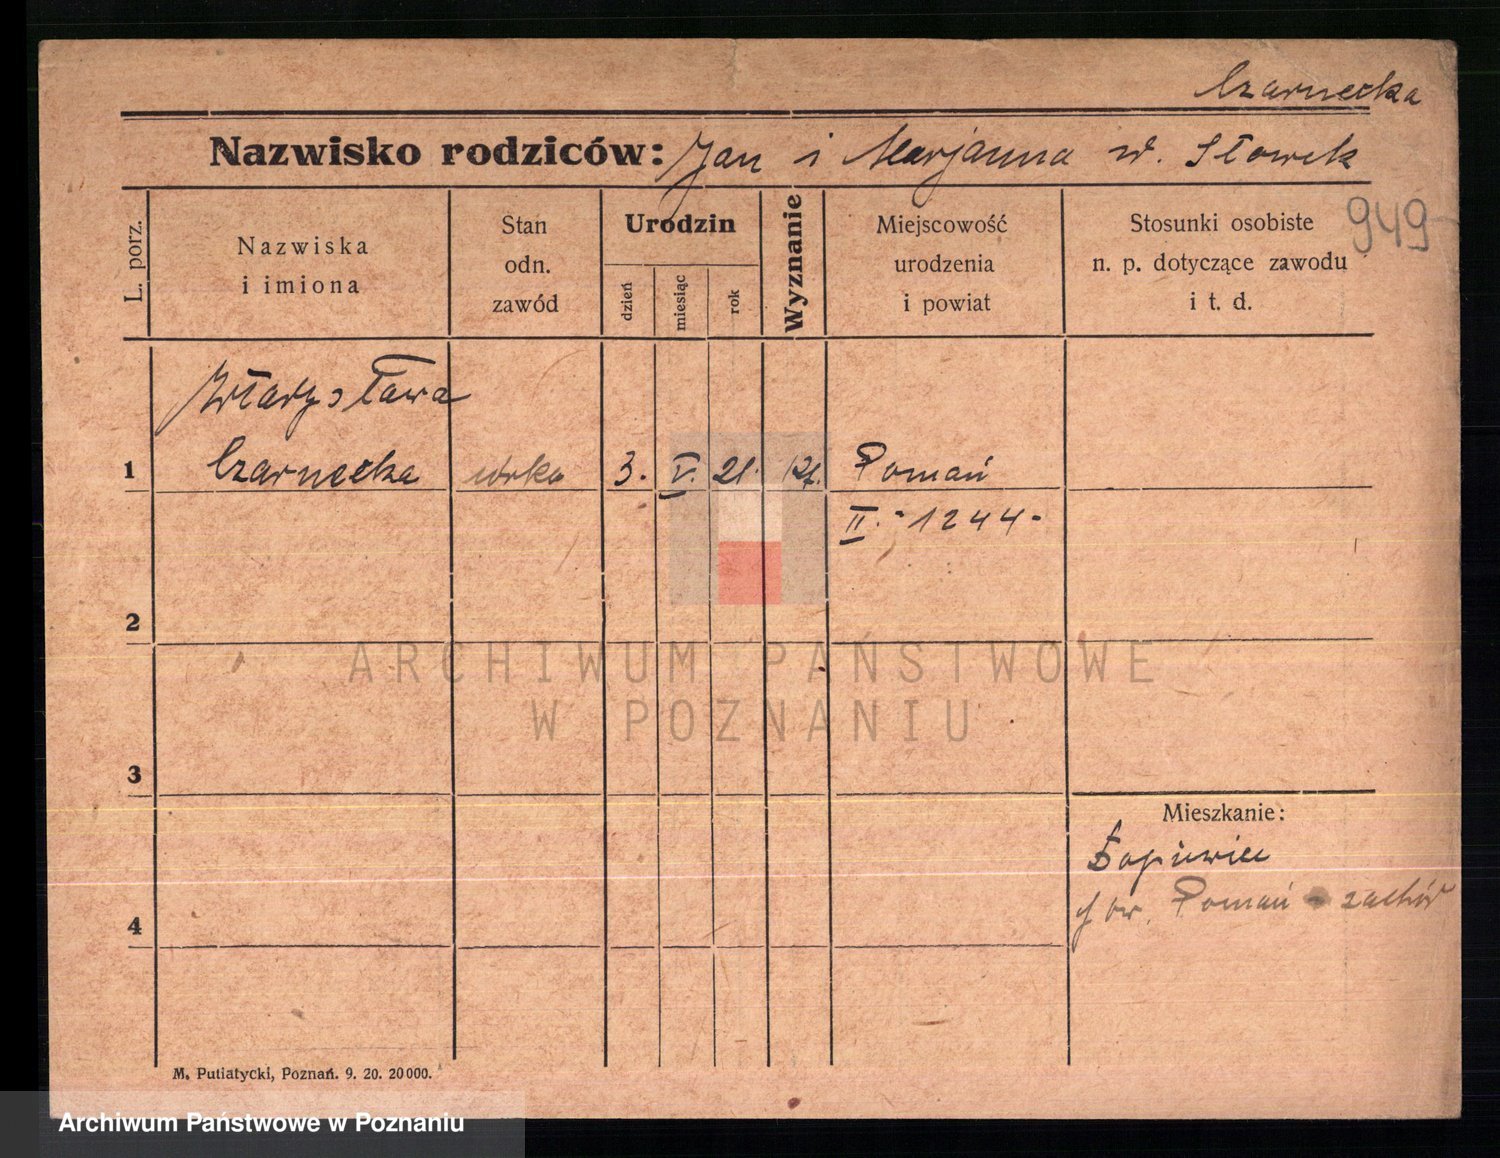 Czarnecka
Nazwisko rodziców: Jan i Marjanna w. Słowik
L. porz.
Nazwiska
i imiona
Stan
odn.
zawód
Urodzin
dzień
miesiąc
rok
Wyznanie
Miejscowość
urodzenia
i powiat
Stosunki osobiste
n. p. dotyczące zawodu
i t. d.
949
Władysława
1 Czarnecka córka 3. V. 21. kat. Poznań
II. - 1244 -
2
3
Mieszkanie:
pow. Poznań - zachód
4
M. Putiatycki, Poznań. 9. 20. 20000.
ARCHIWUM PAŃSTWOWE
W POZNANIU
Archiwum Państwowe w Poznaniu